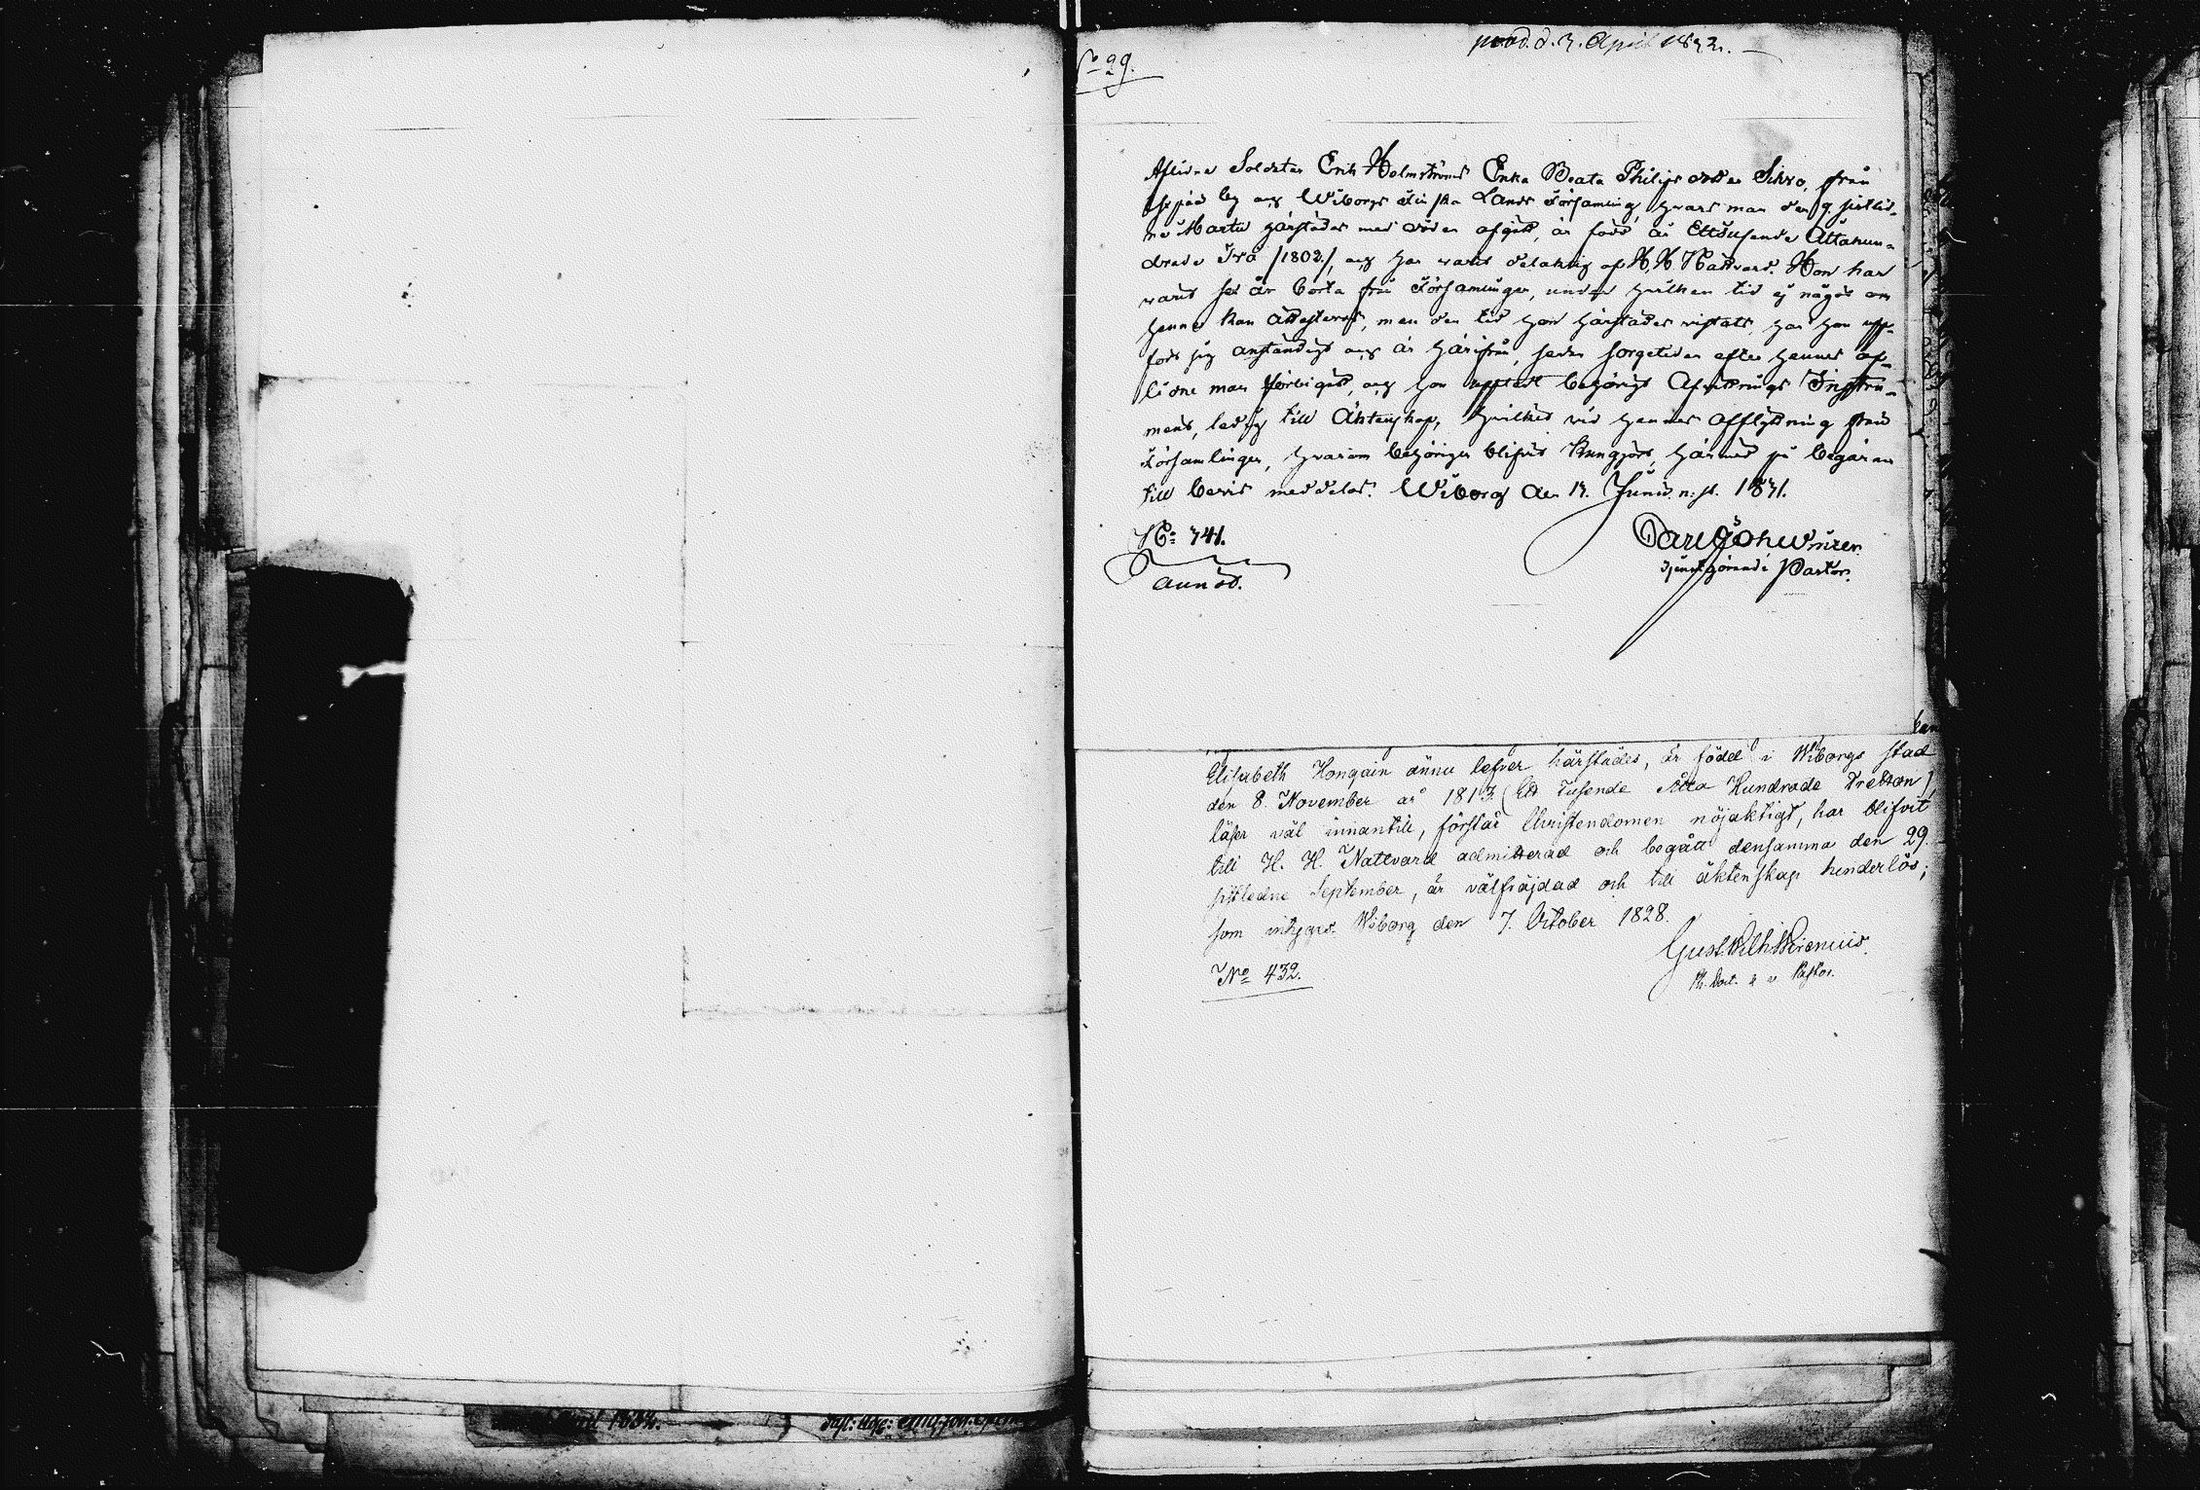 prod. d. 3. April 1832.
No 29.
Aflidne Soldaten Erik Holmströms Enka Beata Philips dotter Sikro, från
by och Wiborgs Finska Lands Församling, hvars man den 9. sistlid-
ne Martii härstädes med döden afgått, är född år Ettusende Åttahun-
drade Två /1802/, och har varit delaktig af H. H. Nattvard. Hon har
varit sex år borta från Församlingen, under hvilken tid ej något om
henne kan attesteras, men den tid hon härstädes vistats, har hon upp-
fört sig anständigt och är härifrån, sedan sorgetiden efter hennes af-
lidne man förbigått, och hon upptedt behörigt Afvittrings Instru-
ment, ledig till Äktenskap, hvilket vid hennes afflyttning från
Församlingen, hvarom behörigen blifvit kungjort, härmed på begäran
till bevis meddelas. Wiborg den 17. Junii n. st. 1831.
No 741.
Carl Joh
tjenstgörande Pastor.
Elisabeth Hongain ännu lefver härstädes, är född i Wiborgs stad
den 8. November år 1813 (Ett Tusende Åtta Hundrade Tretton),
läser väl innantill, förstår Christendomen nöjaktigt, har blifvit
till H. H. Nattvard admitterad och begått densamma den 29
sistledne September, är välfräjdad och till äktenskap hinderlös;
som intygas. Wiborg den 7. October 1828.
Gust. Wilh. Wirenius.
No 432.
Pastor.
April 1832.